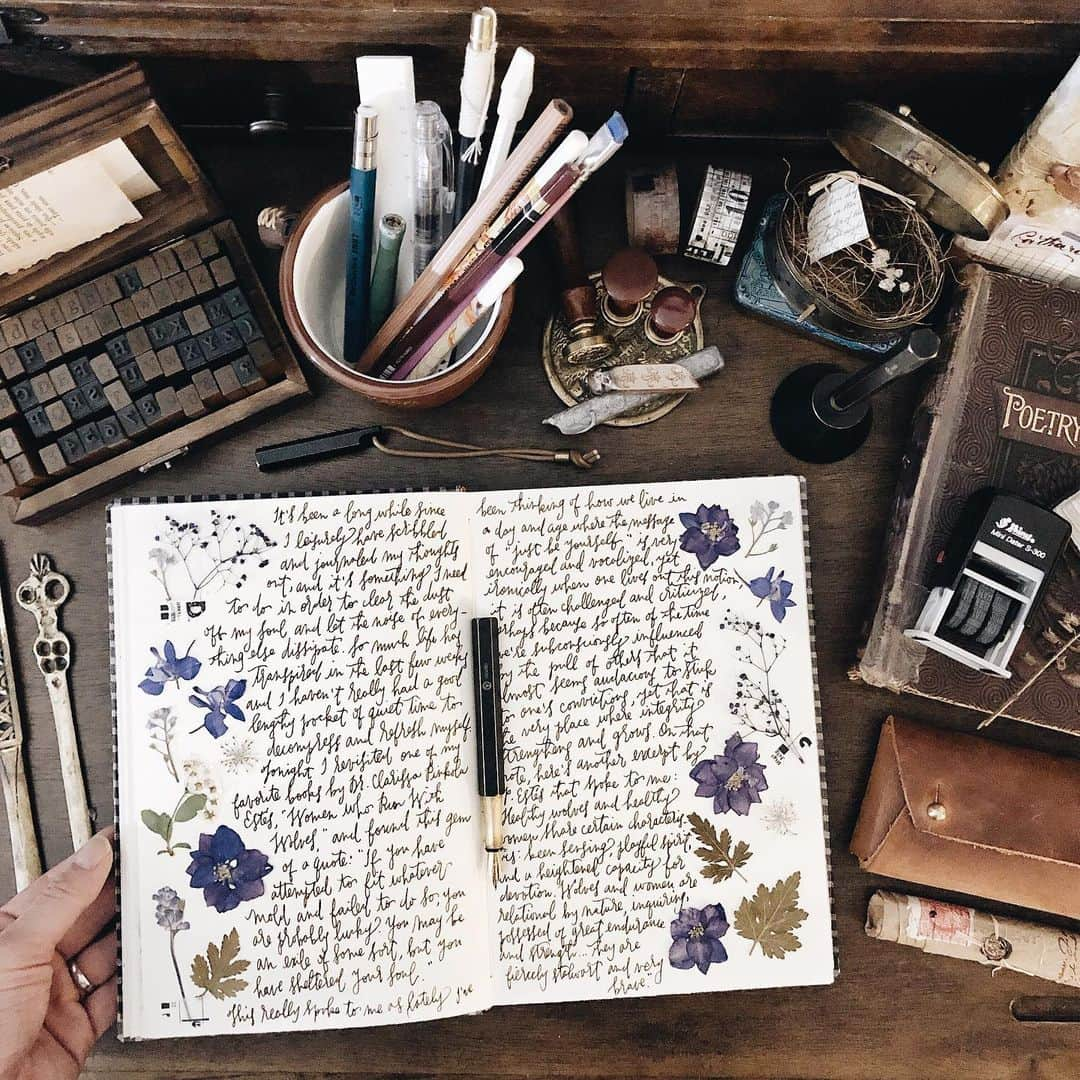 It's been a long while since
I leisurely have scribbled
and journaled my thoughts
out, and it's something I need
to do in order to clear the dust
off my soul and let the noise of every-
thing else dissipate. So much life has
transpired in the last few weeks
and I haven't really had a good
lengthy pocket of quiet time to
decompress and refresh myself.
Tonight I revisited one of my
favorite books by Dr. Clarissa Pinkola
Estes, "Women who Run With
Wolves," and found this gem
of a quote: "If you have
attempted to fit whatever
mold and failed to do so, you
are probably lucky. You may be
an exile of some sort, but you
have sheltered your soul."
This really spoke to me as lately I've
been thinking of how we live in
a day and age where the message
of "just be yourself" is very
encouraged and vocalized, yet
ironically when one lives out this notion
it is often challenged and criticized,
perhaps because so often of the time
we're subconsciously influenced
by the pull of others that it
almost seems audacious to stick
to one's convictions, yet that is
the very place where integrity
strengthens and grows. On that
note, here's another excerpt by
Estes that spoke to me:
Healthy wolves and healthy
women share certain characteris
ics: keen sensing, playful spirit,
and a heightened capacity for
devotion. Wolves and women are
relational by nature, inquiring,
possessed of great endurance
and strength... They are
fiercely stalwart and very
brave."
D
POETRY
Mini Dater S-300
10